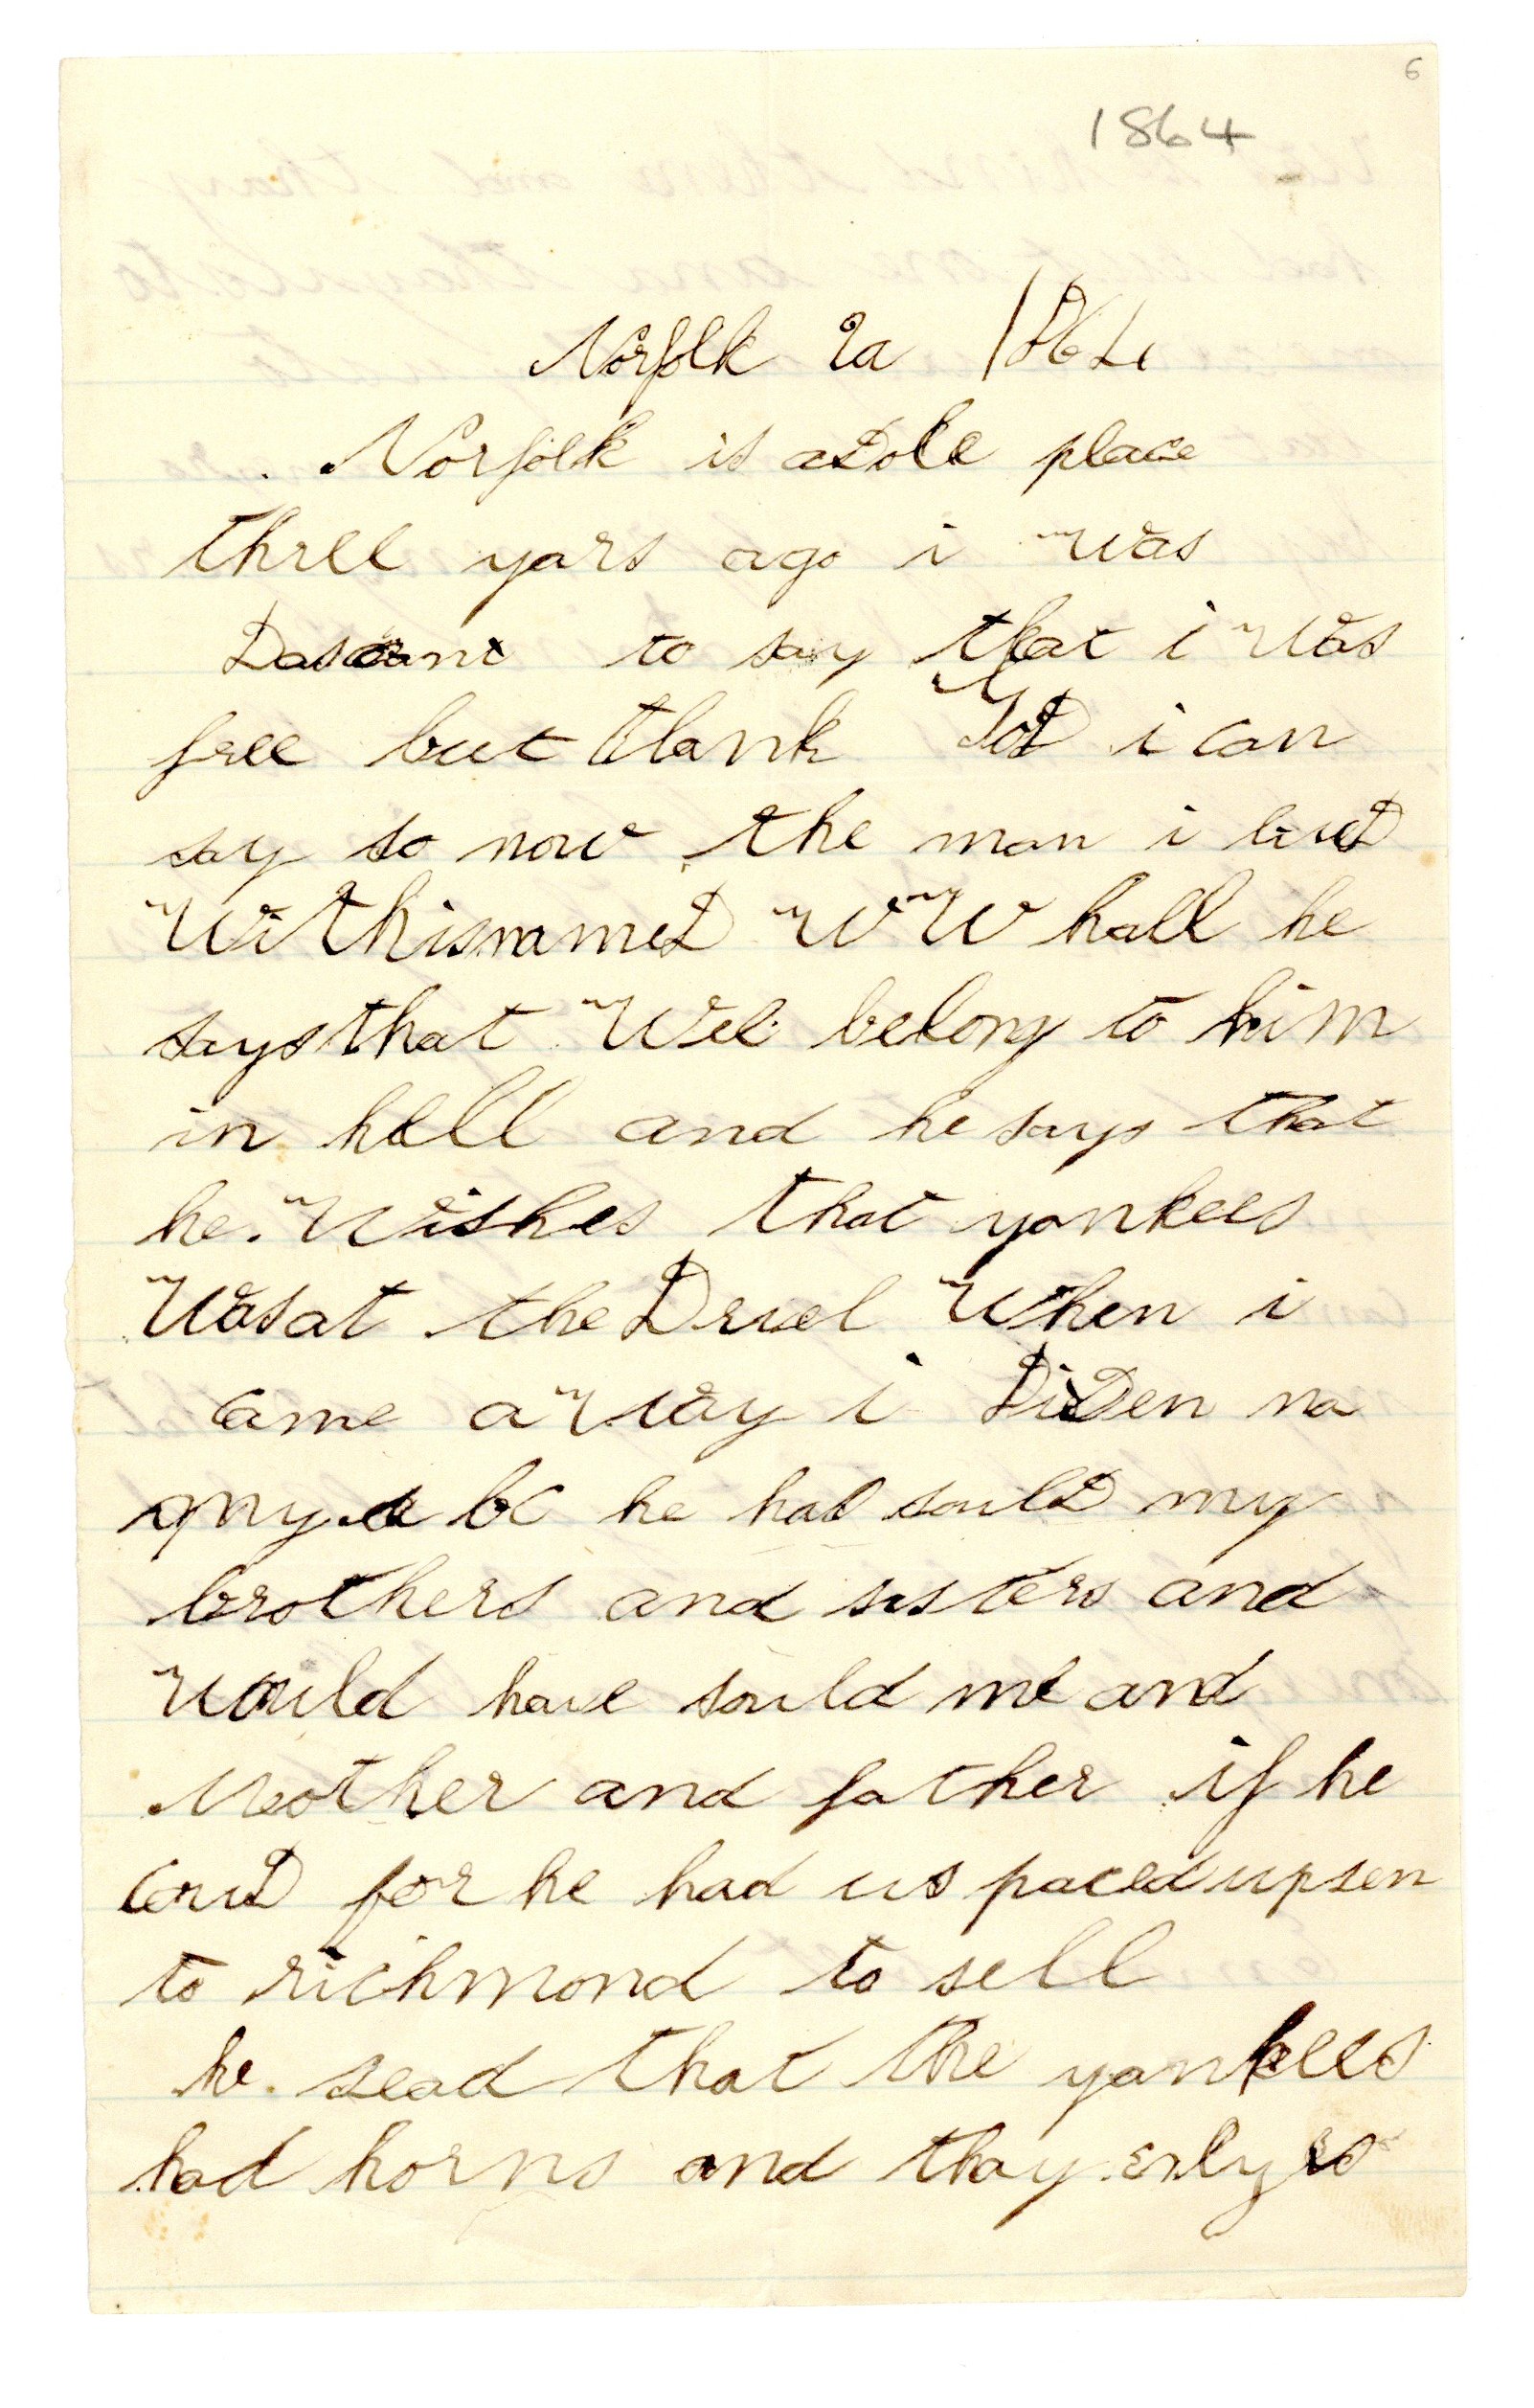 6
1864
Norfolk Va 1864
Norfolk is a Dole place
three yars ago i was
Dasant to say that i was
free but thank God i can
say so now the man i livD
With is nameD W W hall he
says that Wee belong to him
in hell and he says that
he Wishes that yankees
Was at the Druel When i
came a Way i DiDen na
my a bc he had soulD my
brothers and sisters and
would have sould me and
Mother and father if he
couD for he had us paced up sen
to richmond to sell
he sead that the yankees
had horns and thay